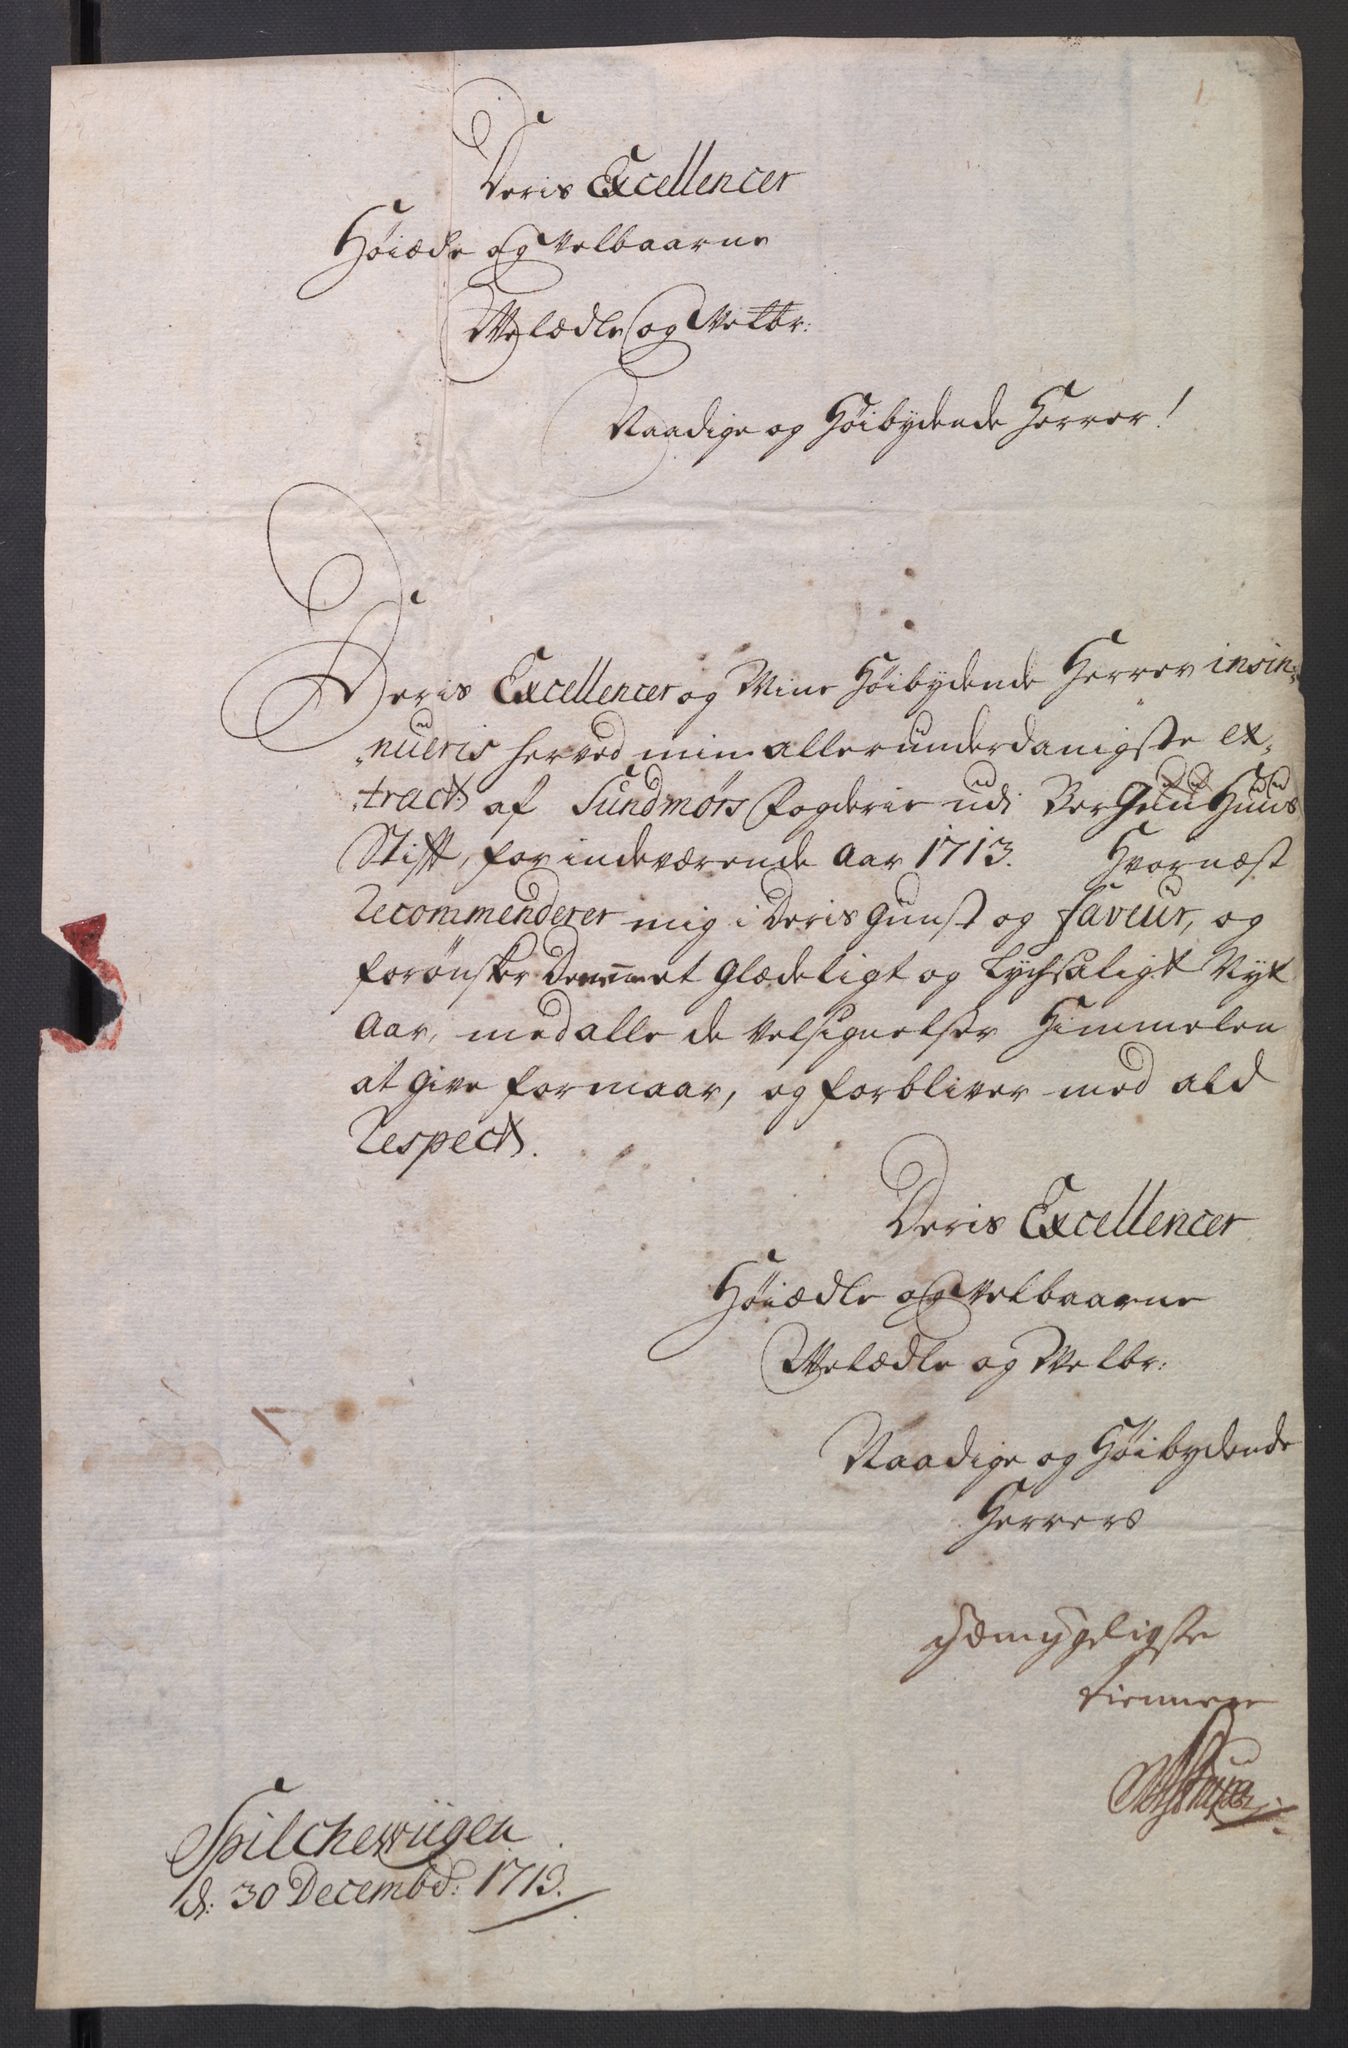 Deris Excellencer
Høiædle og Velbaarne
Velædle og Velbr:
Naadige og Høibydende Herrer!
Deris Excellencer og Mine Høibydende Herrer insin„
„nueris herved min allerunderdanigste ex„
„tract af Sundmørs Fogderie udi Bergen Huus
Stift, for indeværende Aar 1713. Hvornæst
Recommenderer mig i Deris Gunst og faveur, og
forønsker Dennem et Glædeligt og Lychsaligt Nyt
Aar, med alle de velsignelser Himmelen
at give formaar, og forbliver med ald
Respect.
Deris Excellencer
Høiædle og Velbaarne
Velædle og Velbr:
Naadige og Høibydende
Herrers
ydmygeligste
tiennere
Spilchewiigen
d: 30 Decembd: 1713.